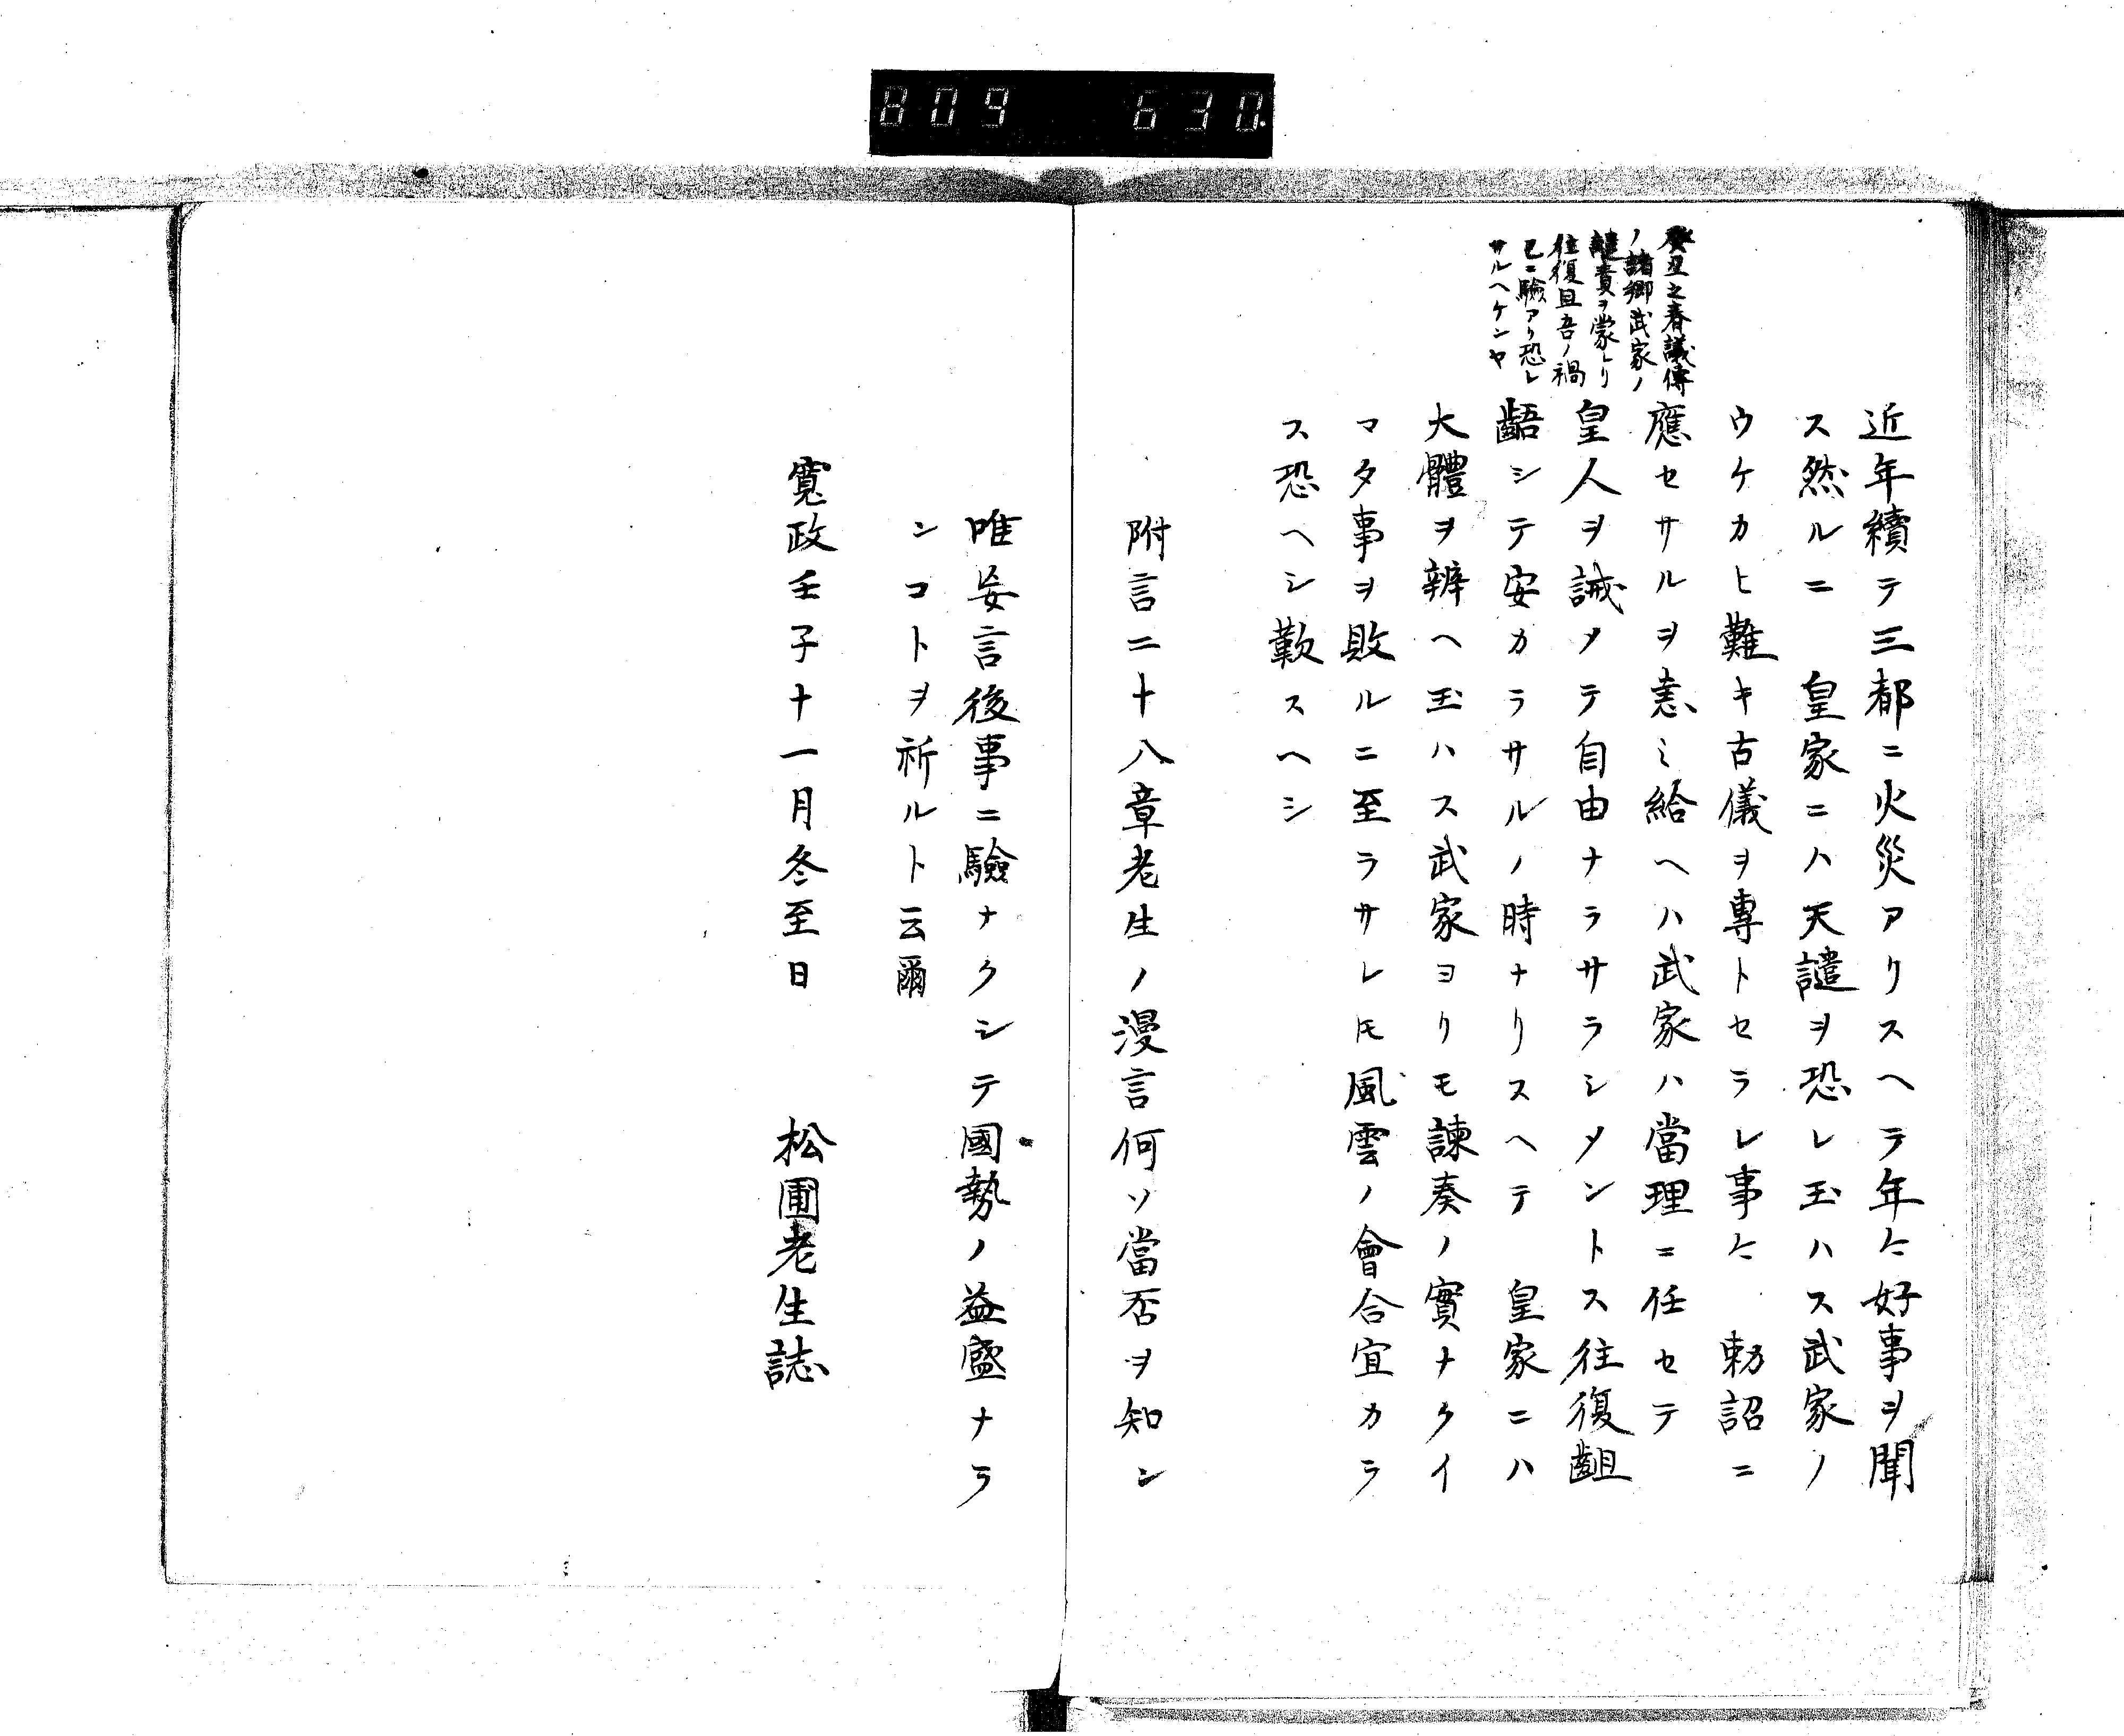 809 630.
癸丑之春議傳
ノ諸卿武家ノ
譴責ヲ蒙レリ
往復且吾ノ禍
已ニ驗アリ恐レ
サルヘケンヤ
近年續テ三都ニ火災アリスヘラ年々好事ヲ聞
ス然ルニ 皇家ニハ天譴ヲ恐レ玉ハス武家ノ
ウケカヒ難キ古儀ヲ專トセラレ事々 勅詔ニ
應セサルヲ恚ミ給ヘハ武家ハ當理ニ任セテ
皇人ヲ誡メテ自由ナラサラシメントス往復齟
齬シテ安カラサルノ時ナリスヘテ 皇家ニハ
大體ヲ辨ヘ玉ハス武家ヨリモ諫奏ノ實ナクイ
マタ事ヲ敗ルニ至ラサレ𪜈風雲ノ會合宜カラ
ス恐ヘシ歎スヘシ
附言二十八章老生ノ漫言何ソ當否ヲ知ン
唯妄言後事ニ驗ナクシテ國勢ノ益盛ナラ
ンコトヲ祈ルト云爾
寛政壬子十一月冬至日 松圃老生誌